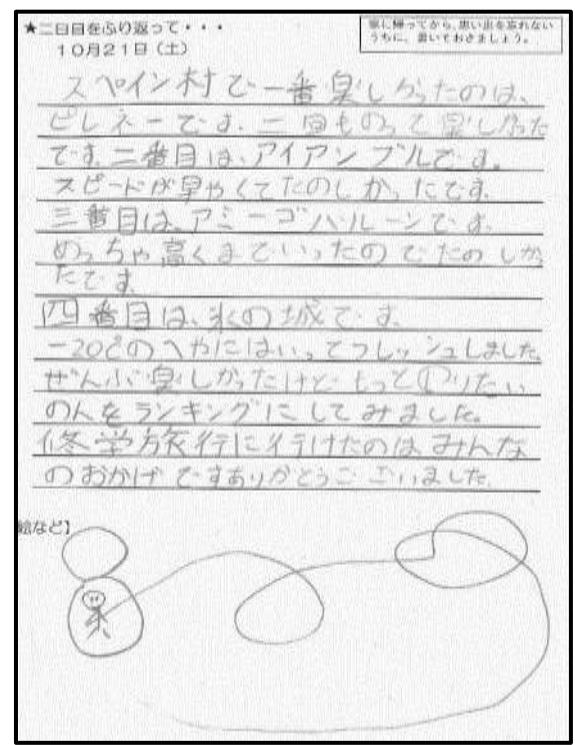 ★二日目をふり返って・・・
10月21日(土)
家に帰ってから、思い出を忘れない
うちに、書いておきましょう。
スペイン村で一番楽しかったのは、
ピレネーです。二回ものって楽しかった
です。二番目は、アイアンブルです。
スピードが早やくてたのしかったです。
三番目は、アミーゴバルーンです。
めっちゃ高くまでいったのでたのしかっ
たです。
四番目は、氷の城です。
-20℃のへやにはいってフレッシュしました。
ぜんぶ楽しかったけどもっとのりたい
のんをランキングにしてみました。
修学旅行に行けたのはみんな
のおかげですありがとうございました。
絵など】